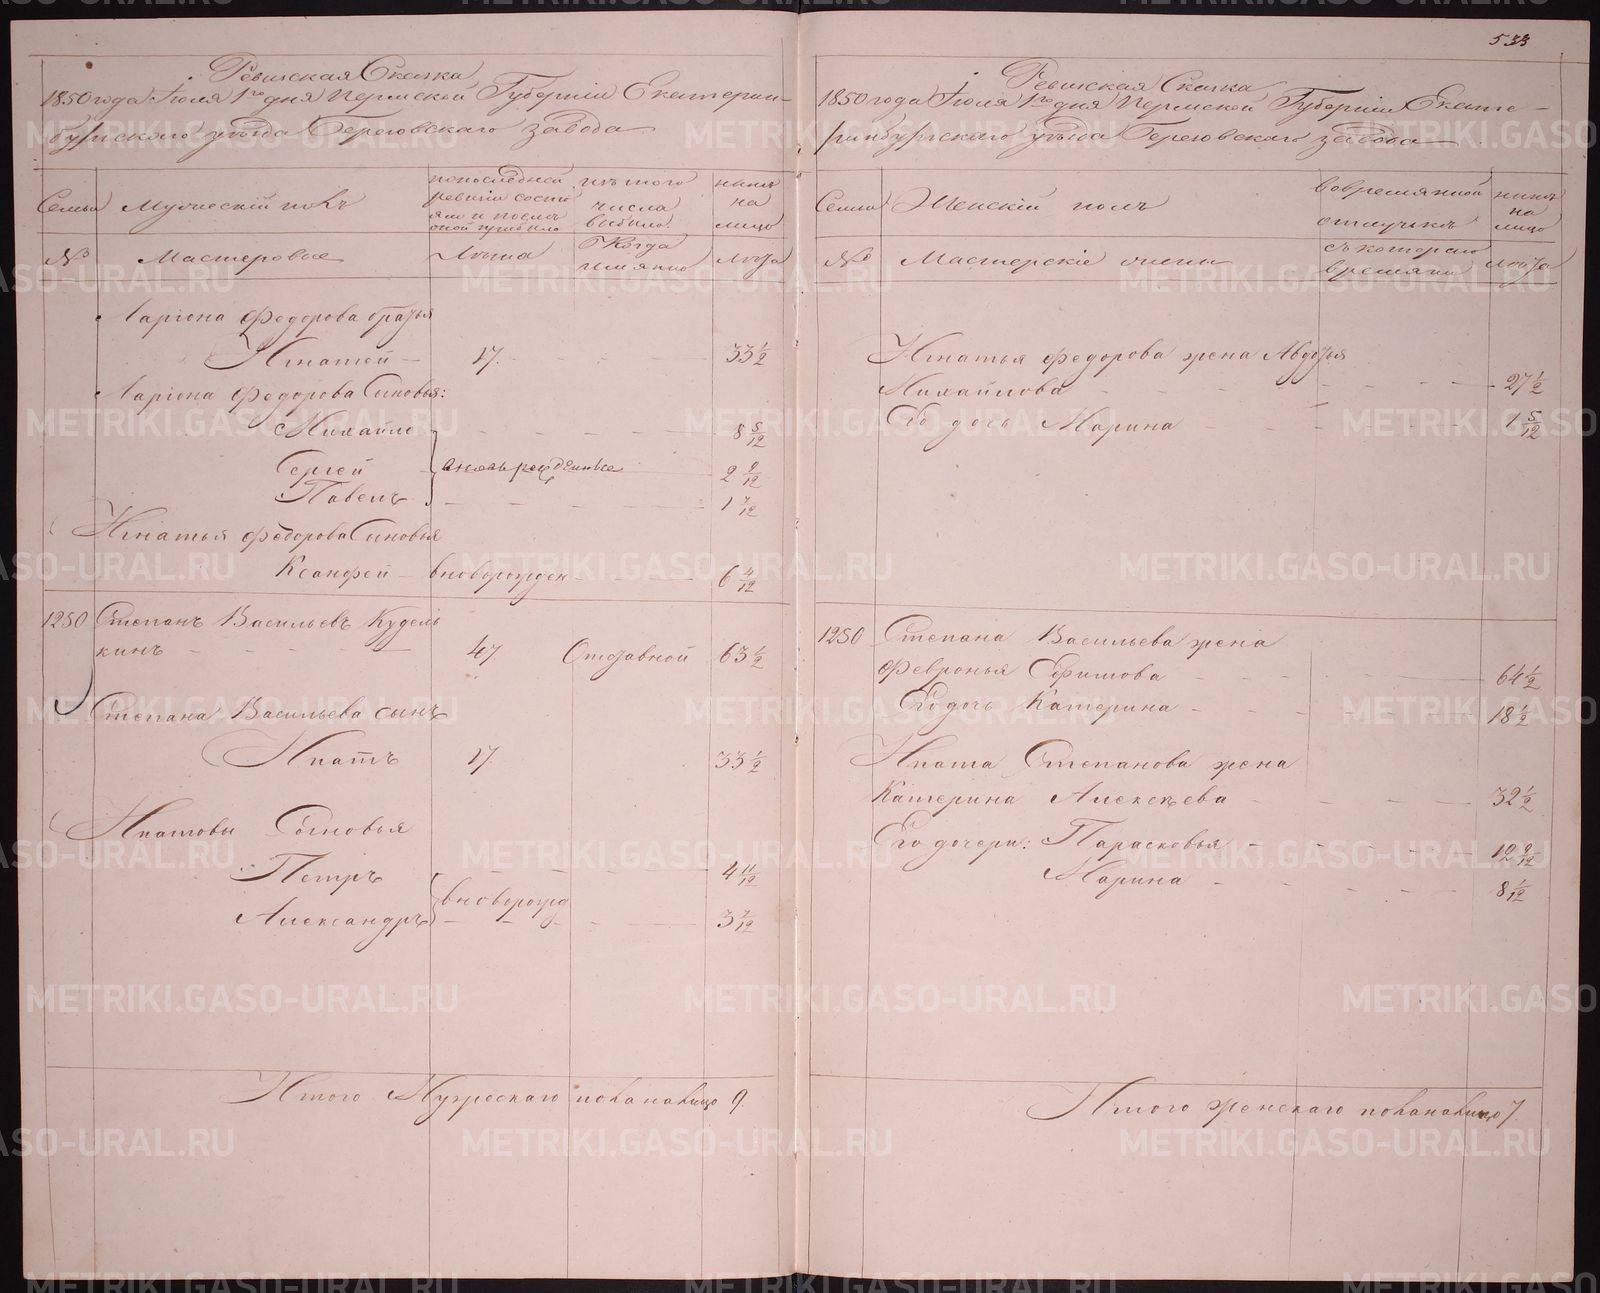 533
Ревизская Сказка
1850 года Июля 1го дня Пермской Губернiи Екатерин-
бургскаго уѣзда Березовскаго завода
Семьи
Мужескiй полъ
по последней
ревизiи состо
яло и после
оной прибыло
изъ того
числа
выбыло
нынѣ
на
лицо
№
Мастеровые
Лѣта
Когда
имянно
Лѣта
Ларiона Федорова братья
Игнатей 17. 33 1/2
Ларiона Федорова Сыновья:
Михайло 8 5/12
Сергей вновь рожденные 2 9/12
Павелъ 1 7/12
Игнатья Федорова Сыновья
Ксанфей вноворожден 6 4/12
1250 Степанъ Васильевъ Кудель
кинъ 47. Отставной 63 1/2
Степана Васильева сынъ
Ипатъ 17. 33 1/2
Ипатовы Сыновья
Петръ 4 11/12
вноворожд
Александръ 3 7/12
Итого Мужескаго пола налицо 9.
Ревизская Сказка
1850 года Июля 1го дня Пермской Губернiи Екате-
ринбургскаго уѣзда Березовскаго завода
Семьи
Женскiй полъ
во временной
отлучке
нынѣ
на
лицо
№
Мастерскiе жены
съ котораго
времяни
Лѣта
Игнатья Федорова жена Авдотья
Михайлова 27 1/2
Его дочь Марина 1 5/12
1250 Степана Васильева жена
Февронья Ефимова 64 1/2
Его дочь Катерина 18 1/2
Ипата Степанова жена
Катерина Алексѣева 32 1/2
Его дочери: Парасковья 12 9/12
Марина 8 1/12
Итого женскаго пола налицо 7.
METRIKI.GASO-URAL.RU